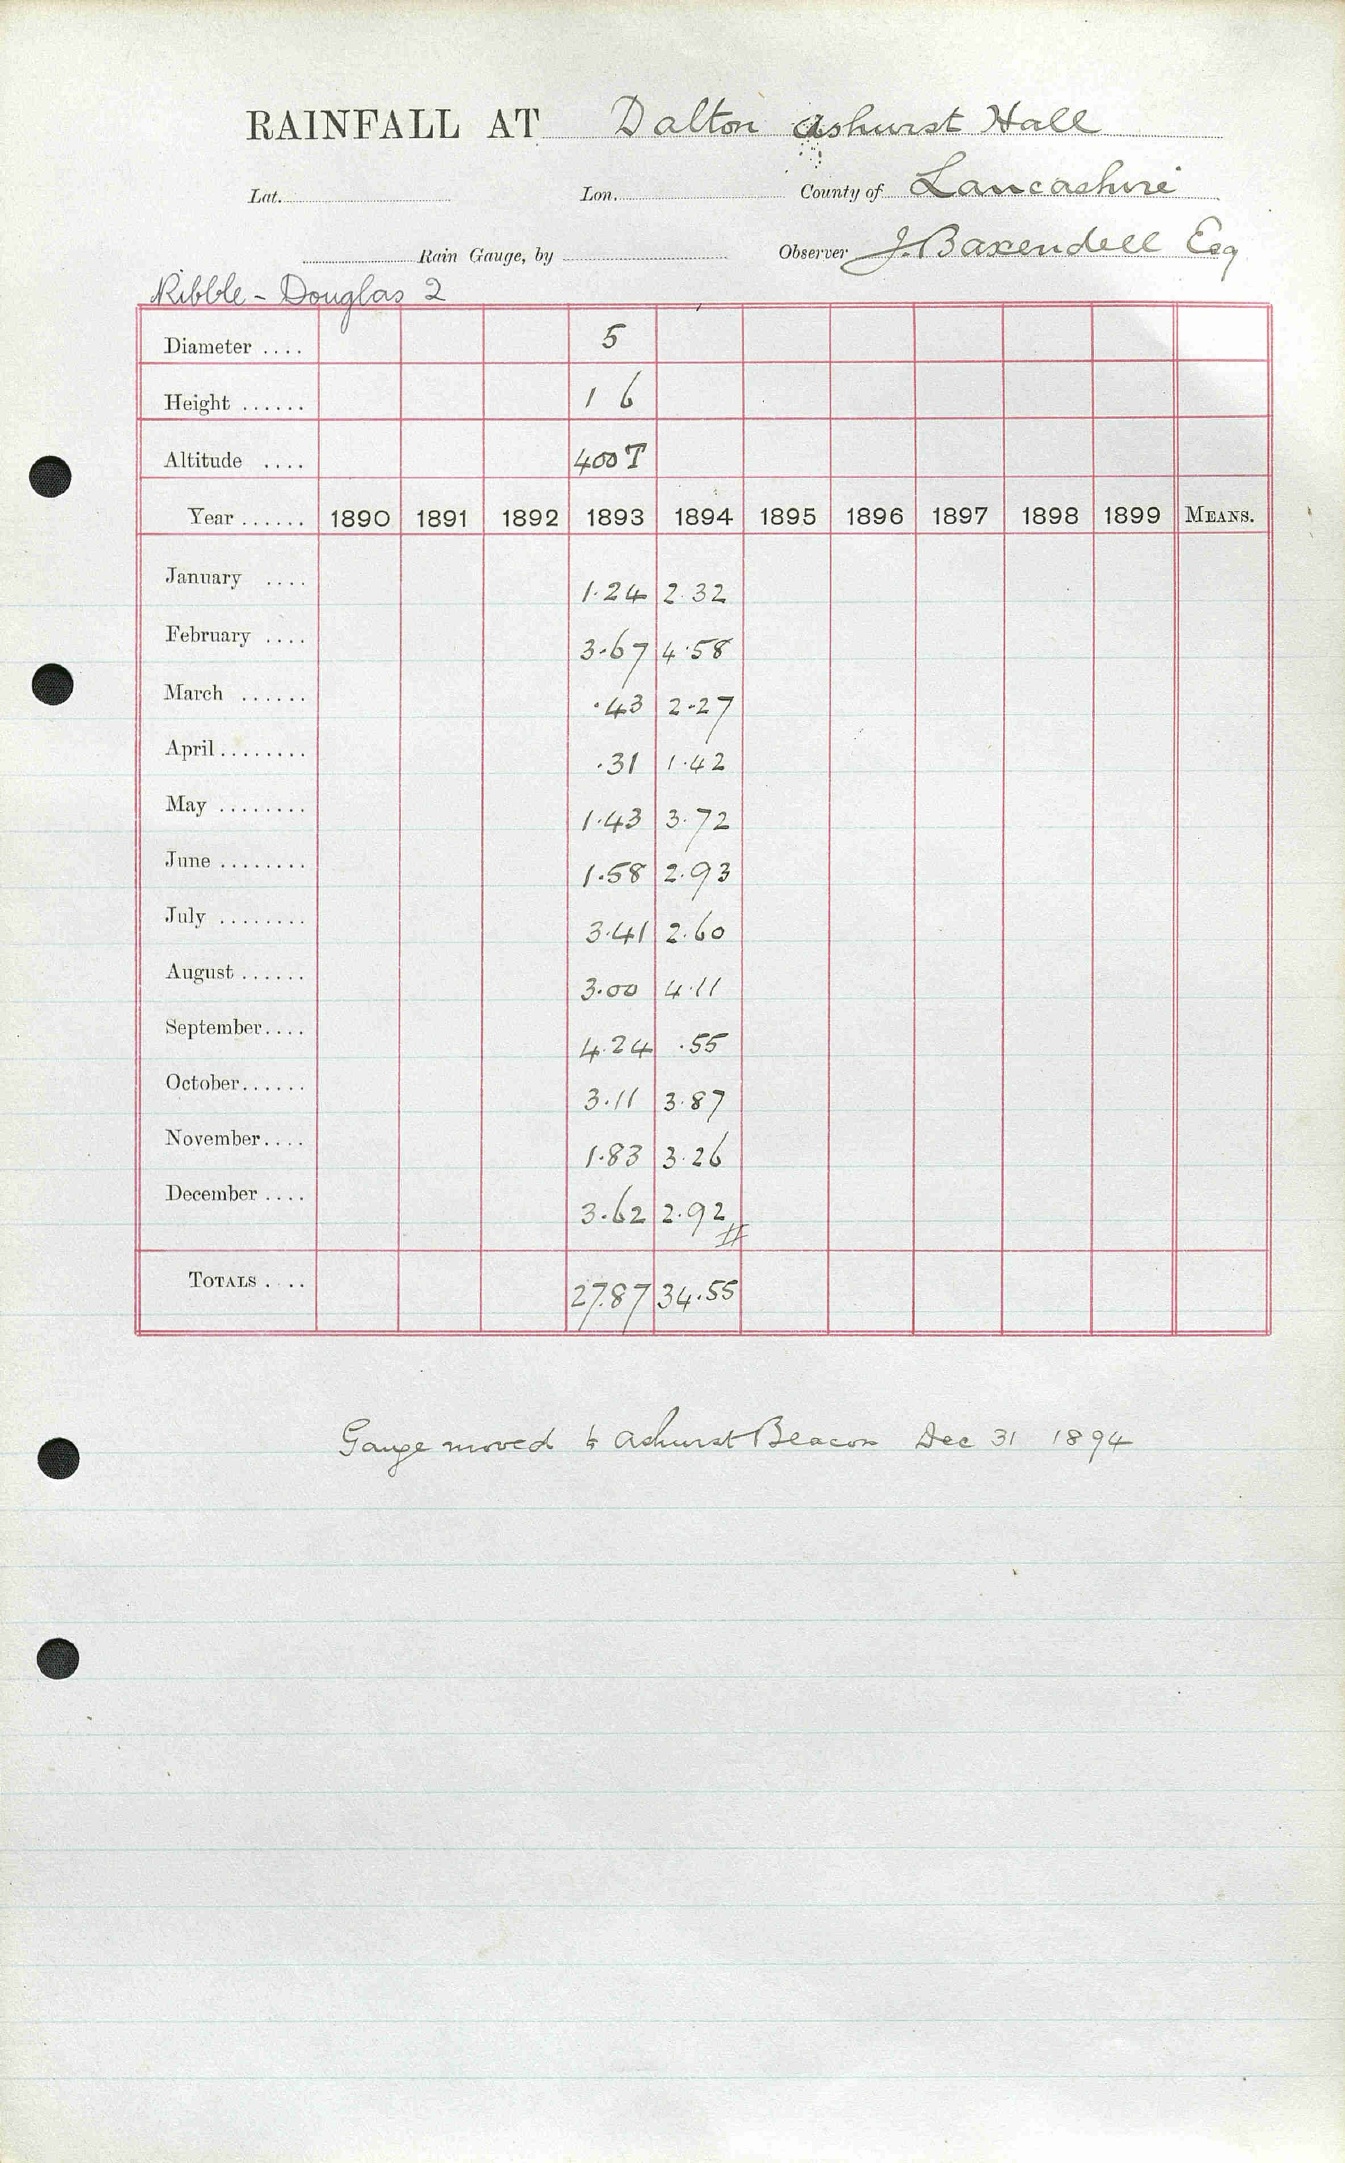 RAINFALL AT Dalton Ashurst Hall
Lat. Lon. County of Lancashire
Rain Gauge, by Observer J. Baxendell Esq
Ribble - Douglas 2
Diameter .... 5
Height ...... 1 6
Altitude .... 400 T
Year ...... 1890 1891 1892 1893 1894 1895 1896 1897 1898 1899 MEANS.
January .... 1.24 2.32
February .... 3.67 4.58
March ...... .43 2.27
April ........ .31 1.42
May ........ 1.43 3.72
June ........ 1.58 2.93
July ........ 3.41 2.60
August ...... 3.00 4.11
September.... 4.24 .55
October...... 3.11 3.87
November.... 1.83 3.26
December .... 3.62 2.92
TOTALS .... 27.87 34.55
Gauge moved to Ashurst Beacon Dec 31 1894